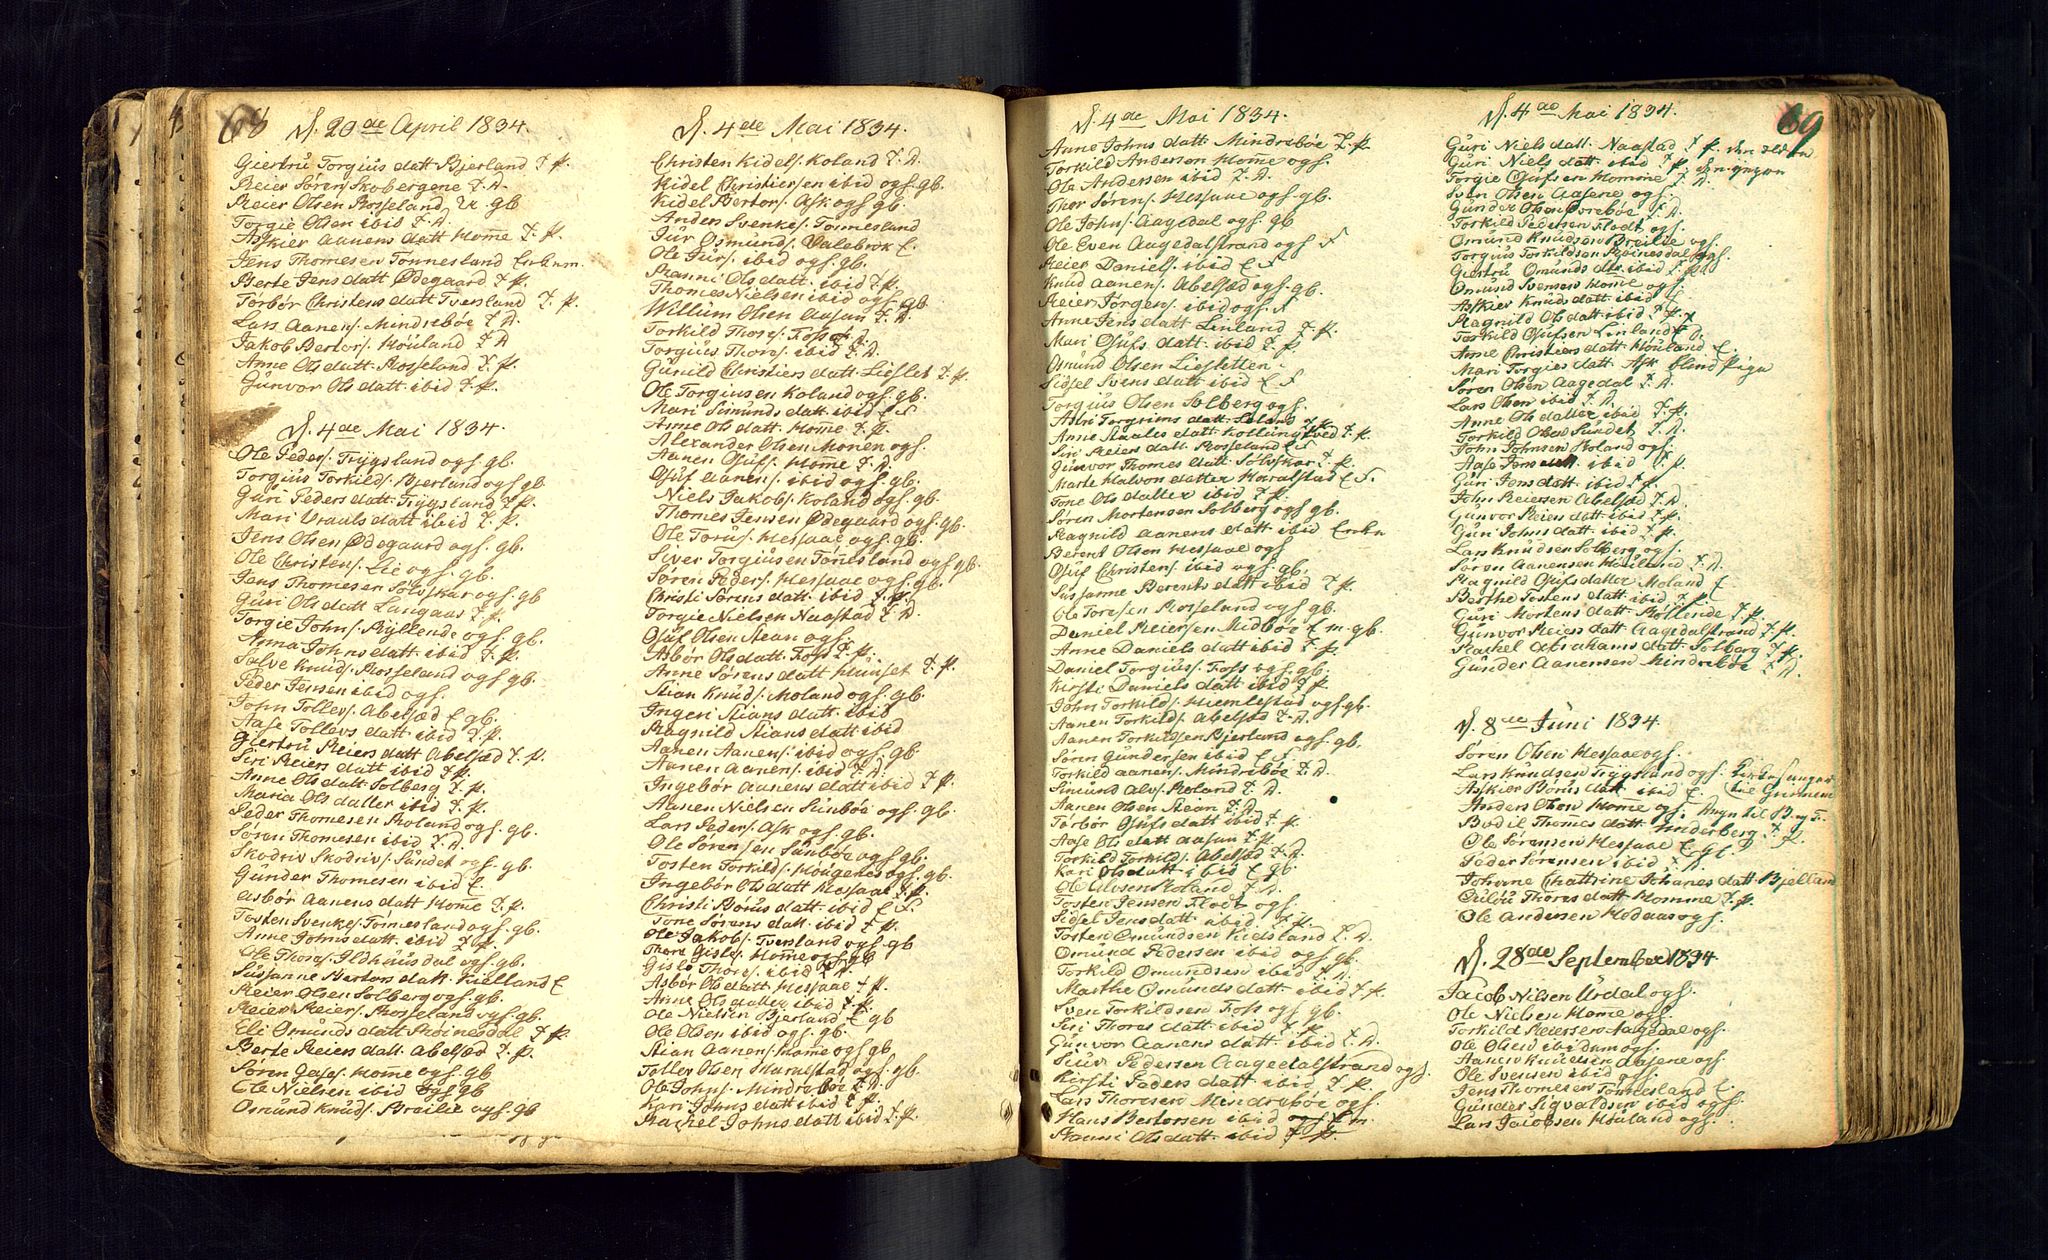 68
d. 20de April 1834.
Giertru Torgius datt Bjerland T. P.
Reier Sören Skobergene T. D.
Reier Olsen Rosseland, U. gb
Torgie Olsen ibid T. D.
Askier Aanens datt Home T. P.
Jens Thomesen Tonnesland Enkem.
Berte Jens datt Ødegaard T. P.
Torbör Christens datt Tversland T. P.
Lars Aanens. Mindreböe T. D.
Jakob Bertors. Houland T. D
Anne Ols datt Rosseland T. P.
Gunvor Ols datt ibid T. P.
d. 4de Mai 1834.
Ole Peders. Trygsland og s. gb.
Torgius Torkilds. Bjerland og s gb
Guri Peders datt Trygsland T. P.
Mari Vrauls datt ibid T. P.
Jens Olsen Ødegaard og s. gb.
Ole Christens. Lie og s. gb.
Jens Thomesen Solvskar og s. gb
Guri Ols datt Langaas T. P.
Torgie Johns. Ryllende og s. gb.
Anna Johns datt. ibid T. P.
Salve Knuds. Rosseland og s gb.
Peder Jensen ibid og s.
John Tollevs. Abelsæd E gb.
Aase Tollevs datt ibid T. P.
Giertru Reiers datt Abelsæd T. P.
Siri Reiers datt ibid T. P.
Anne Ols datt Solberg T. P.
Maria Ols datter ibid T. P.
Peder Thomesen Roland og s. gb.
Sören Thomesen ibid T. D.
Skodriv Skodrivs. Sundet og s. gb.
Gunder Thomesen ibid E.
Asbör Aanens datt Home T. P.
Tosten Svenkes. Tonnesland og s. gb.
Anne Johns datt. ibid T. P.
Ole Thors. Ildhuusdal og s. gb.
Sussanne Bertors datt. Kielland E
Reier Olsen Solberg og s. gb.
Reier Reiers. Rosseland og s. gb.
Eli Omunds datt Röinesdal T. P.
Berte Reiers datt. Abelsæd T. P.
Sören Jass. Home og s. gb
Ole Nielsen ibid og s gb
Osmund Knuds. Breilie og s. gb
d. 4de Mai 1834.
Christen Kidels. Roland T. D.
Kidel Christiersen ibid og s. gb.
Kidel Bertors. Ask og s. gb.
Anders Svenkes. Tonnesland
Jur Osmunds. Valebrok E.
Ole Jurs. ibid og s. gb.
Ranni Ols datt. ibid T. P.
Thomes Nielsen ibid og s. gb
Willum Olsen Aasan T. D.
Torkild Thores. Foss T. D.
Torgius Thors. ibid T. D.
Gunild Christiers datt. Lieslet T. P.
Ole Torgiusen Roland og s. gb.
Mari Simunds datt ibid E F
Anne Ols datt Home T. P.
Alexander Olsen Monen og s.
Aanen Osufs. Home T. D.
Osuf Aanens. ibid og s. gb.
Niels Jakobs. Roland og s. gb
Thomes Jensen Ødegaard og s. gb.
Ole Torus. Messaae og s. gb.
Siver Torgiusen Tonnesland og s gb.
Sören Peders. Messaae og s. gb.
Christi Sörens datt ibid T. P.
Torgie Nielsen Naastad T. D.
Osuf Olsen Stean og s.
Asbör Ols datt. Foss T. P.
Anne Sörens datt Hunset T. P.
Stian Knuds. Moland og s. gb.
Ingeri Stians datt. ibid
Ragnild Stians datt ibid
Aanen Aanens. ibid og s. gb
Aanen Aanens. ibid T. D.
Ingebör Aanens datt ibid T. P.
Aanen Nielsen Sunböe og s. gb
Lars Peders. Ask og s. gb.
Ole Sörensen Sunböe og s gb.
Tosten Torkilds. Hougenes og s. gb.
Ingebör Ols datt Messaae T. P.
Christi Börus datt. ibid E F.
Tone Sörens datt. ibid T. P.
Ole Jakobs. Tversland og s. gb
Thore Gisles. Home og s gb
Gisle Thores. ibid T. D.
Asbör Ols datt Messaae T. P.
Anne Ols datter ibid T. P.
Ole Nielsen Bjerland E gb
Ole Olsen ibid og s. gb.
Stian Aanens. Home og s. gb
Tollev Olsen Haralstad og s. gb.
Ole Johns. Mindreböe T. D.
Kari Johns datt ibid T. P.
Rachel Johns datt ibid T. P.
d. 4de Mai 1834.
Anne Johns datt Mindreböe T. P.
Torkild Andersen Home og s.
Ole Andersen ibid T. D.
Thor Sörens. Messaae og s. gb.
Ole Johns. Aagedal og s. gb
Ole Even Aagedalstrand og s. F
Reier Daniels. ibid E F
Knud Aanens. Abelsæd og s. gb.
Reier Jörgens. ibid og s. F
Anne Jens datt Linland T. P.
Mari Osufs datt. ibid T. P.
Osmund Olsen Liesletten.
Sidsel Svens datt ibid E F
Torgius Olsen Solberg og s.
Asbi Torgrims datt Loland T. P.
Anne Staalis datt Kollungtved T. P.
Siri Reiers datt. Rosseland E F
Gunvor Thomes datt Solvskar T. P.
Marte Halvon datter Haralstad E F.
Tone Ols datter ibid T. P.
Sören Mortensen Solberg og s gb.
Ragnild Aanens datt. ibid Enke
Berent Olsen Messaae og s
Osuf Christens. ibid og s. gb.
Sussanne Berents datt ibid T. P.
Ole Toresen Rosseland og s gb.
Daniel Reiersen Midböe E m. gb.
Anne Daniels datt ibid T. P.
Daniel Torgius. Foss og s. gb.
Kirsti Daniels datt ibid T P.
John Torkilds. Hiemlestad og s gb.
Aanen Torkilds. Abelsæd T. D.
Aanen Torkildsen Bjerland og s. gb.
Sören Gundersen ibid E F
Torkild Aanens. Mindreböe T. D.
Simund Alvs. Roland T. D.
Aanen Olsen Stean T. D.
Torbör Osufs datt ibid T. P.
Aase Ols datt Aasan T. P.
Torkild Torkilds. Abelsæd T. D.
Kari Ols datt ibid E gb
Ole Ulvsen Roland T. D.
Tosten Jensen Flodt og s.
Sidsel Jens datt. ibid T. P.
Tosten Omundsen Kidsland T. D.
Omund Pedersen ibid og s. gb
Torkild Omundsen ibid T. D.
Marthe Omunds datt ibid T. P.
Sven Torkildsen Foss og s gb.
Siri Thores datt ibid T. P.
Gunvor Aanens datt ibid T. D.
Siur Pedersen Aagedalstrand og s.
Kirsti Peders datt ibid T. P.
Lars Thoresen Mindreböe og s.
Hans Bertorsen ibid og s. E m.
Ranni Ols datt. ibid T. P.
69
d. 4de Mai 1834.
Guri Niels datt. Naastad T. P. den ældre
Guri Niels datt. ibid T. P. den yngre
Torgie Osufsen Homme T. D.
Sven Olsen Aasene og s.
Gunder Olsen Foreböe T. D.
Torkild Pedersen Flodt og s.
Omund Knudsen Breilie og s.
Torgius Torkildsen Röinesdal og s.
Giertru Omunds dtr ibid T. P.
Omund Svensen Home og s.
Askier Knuds datt ibid E
Ragnild Ols datt ibid T. P.
Torkild Osufsen Linland T. D.
Anne Christiers datt Houland E.
Mari Torgies datt Ask blind Piga
Sören Olsen Aagedal T. D.
Lars Olsen ibid T. D.
Anne Ols datter ibid T. P.
Torkild Olsen Sundet T. D.
John Johnsen Roland og s
Aase Jens datt. ibid T. P.
Guri Jens datt ibid T. P.
John Reiersen Abelsæd T. D.
Gunvor Reiers datt ibid T. P.
Guri Johns datt ibid T. P.
Lars Knudsen Solberg og s.
Sören Aanensen Houland T. D.
Ragnild Osufs datter Moland E
Berthe Tostens datt ibid T. P.
Guri Mortens datt Röllende T. P.
Gunvor Reiers datt Aagedalstrand T. P.
Rachel Abrahams datt Solberg T. P.
Gunder Aanensen Mindreböe T. D.
d. 8de Juni 1834.
Sören Olsen Messaae og s.
Lars Knudsen Trygsland og s. Kirkesanger
Askier Börus datt ibid E. til Gunnem
Anders Olson Home og s.
Bodil Thommes datt Underberg T. P.
Ole Sörensen Messaae E. gb.
Peder Sörensen ibid T. D.
Johanne Chattrine Johanes datt Bjelland
Gulou Thores datt Homme T. P
Ole Andersen Hodaas og s.
d. 28de September 1834
Jacob Nilsen Urdal og s.
Ole Nielsen Home og s.
Torkild Reiersen Aagedal og s.
Ole Olsen ibidem og s.
Aanen Knudsen Aasene og s.
Ole Svensen ibid og s.
Jens Thomesen Tonnesland E.
Gunder Sigvaldsen ibid og s.
Lars Jacobsen Houland og s.